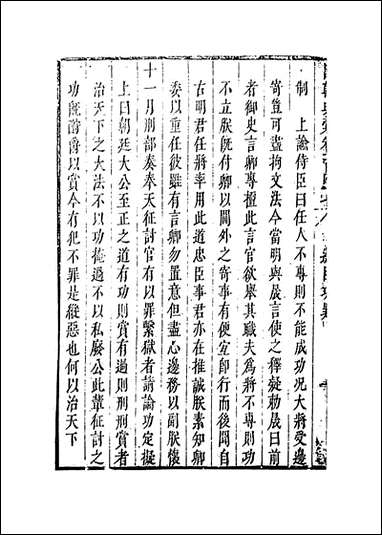 制　上諭侍臣曰任人不專則不能成功况大將受邊
寄豈可盡拘文法今當明與晟言使之釋疑勅晟曰前
者御史言卿專擅此言官欲舉其職夫爲將不專則功
不立朕旣付卿以閫外之寄事有便宜卽行而後聞自
古明君任將率用此道忠臣事君亦在推誠朕素知卿
委以重任彼雖有言卿勿置意但盡心邊務以副朕懷
十一月刑部奏奉天征討官有以罪繫獄者請論功定擬
上曰朝廷大公至正之道有功則賞有過則刑刑賞者
治天下之大法不以功掩過不以私廢公此輩征討之
功旣酬爵以賞今有犯不罪是縱惡也何以治天下